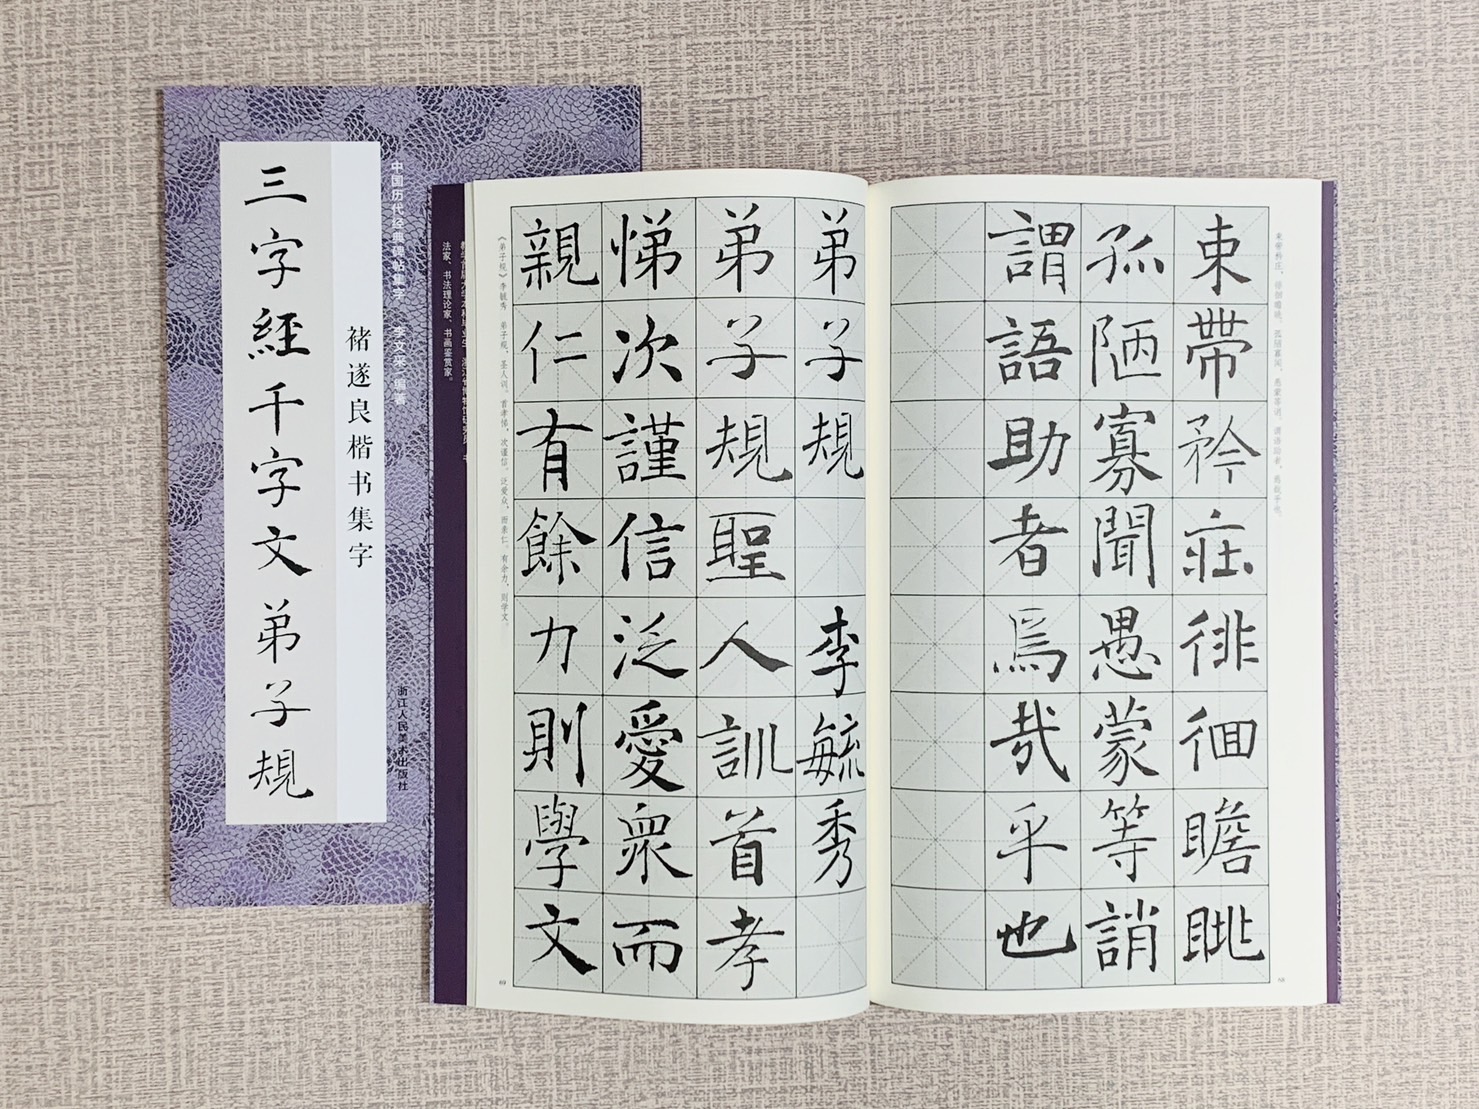 三字經千字文弟子規
褚遂良楷书集字
中国历代经典碑帖集字
编著
浙江人民美术出版社
法家、书法理论家、书画鉴赏家。
束帶矜莊徘徊瞻眺
孤陋寡聞愚蒙等誚
謂語助者焉哉乎也
束带矜庄，徘徊瞻眺。孤陋寡闻，愚蒙等诮。谓语助者，焉哉乎也。
68
弟子規 李毓秀
弟子規聖人訓首孝
悌次謹信泛愛衆而
親仁有餘力則學文
《弟子规》李毓秀 弟子规，圣人训。首孝悌，次谨信。泛爱众，而亲仁。有余力，则学文。
69